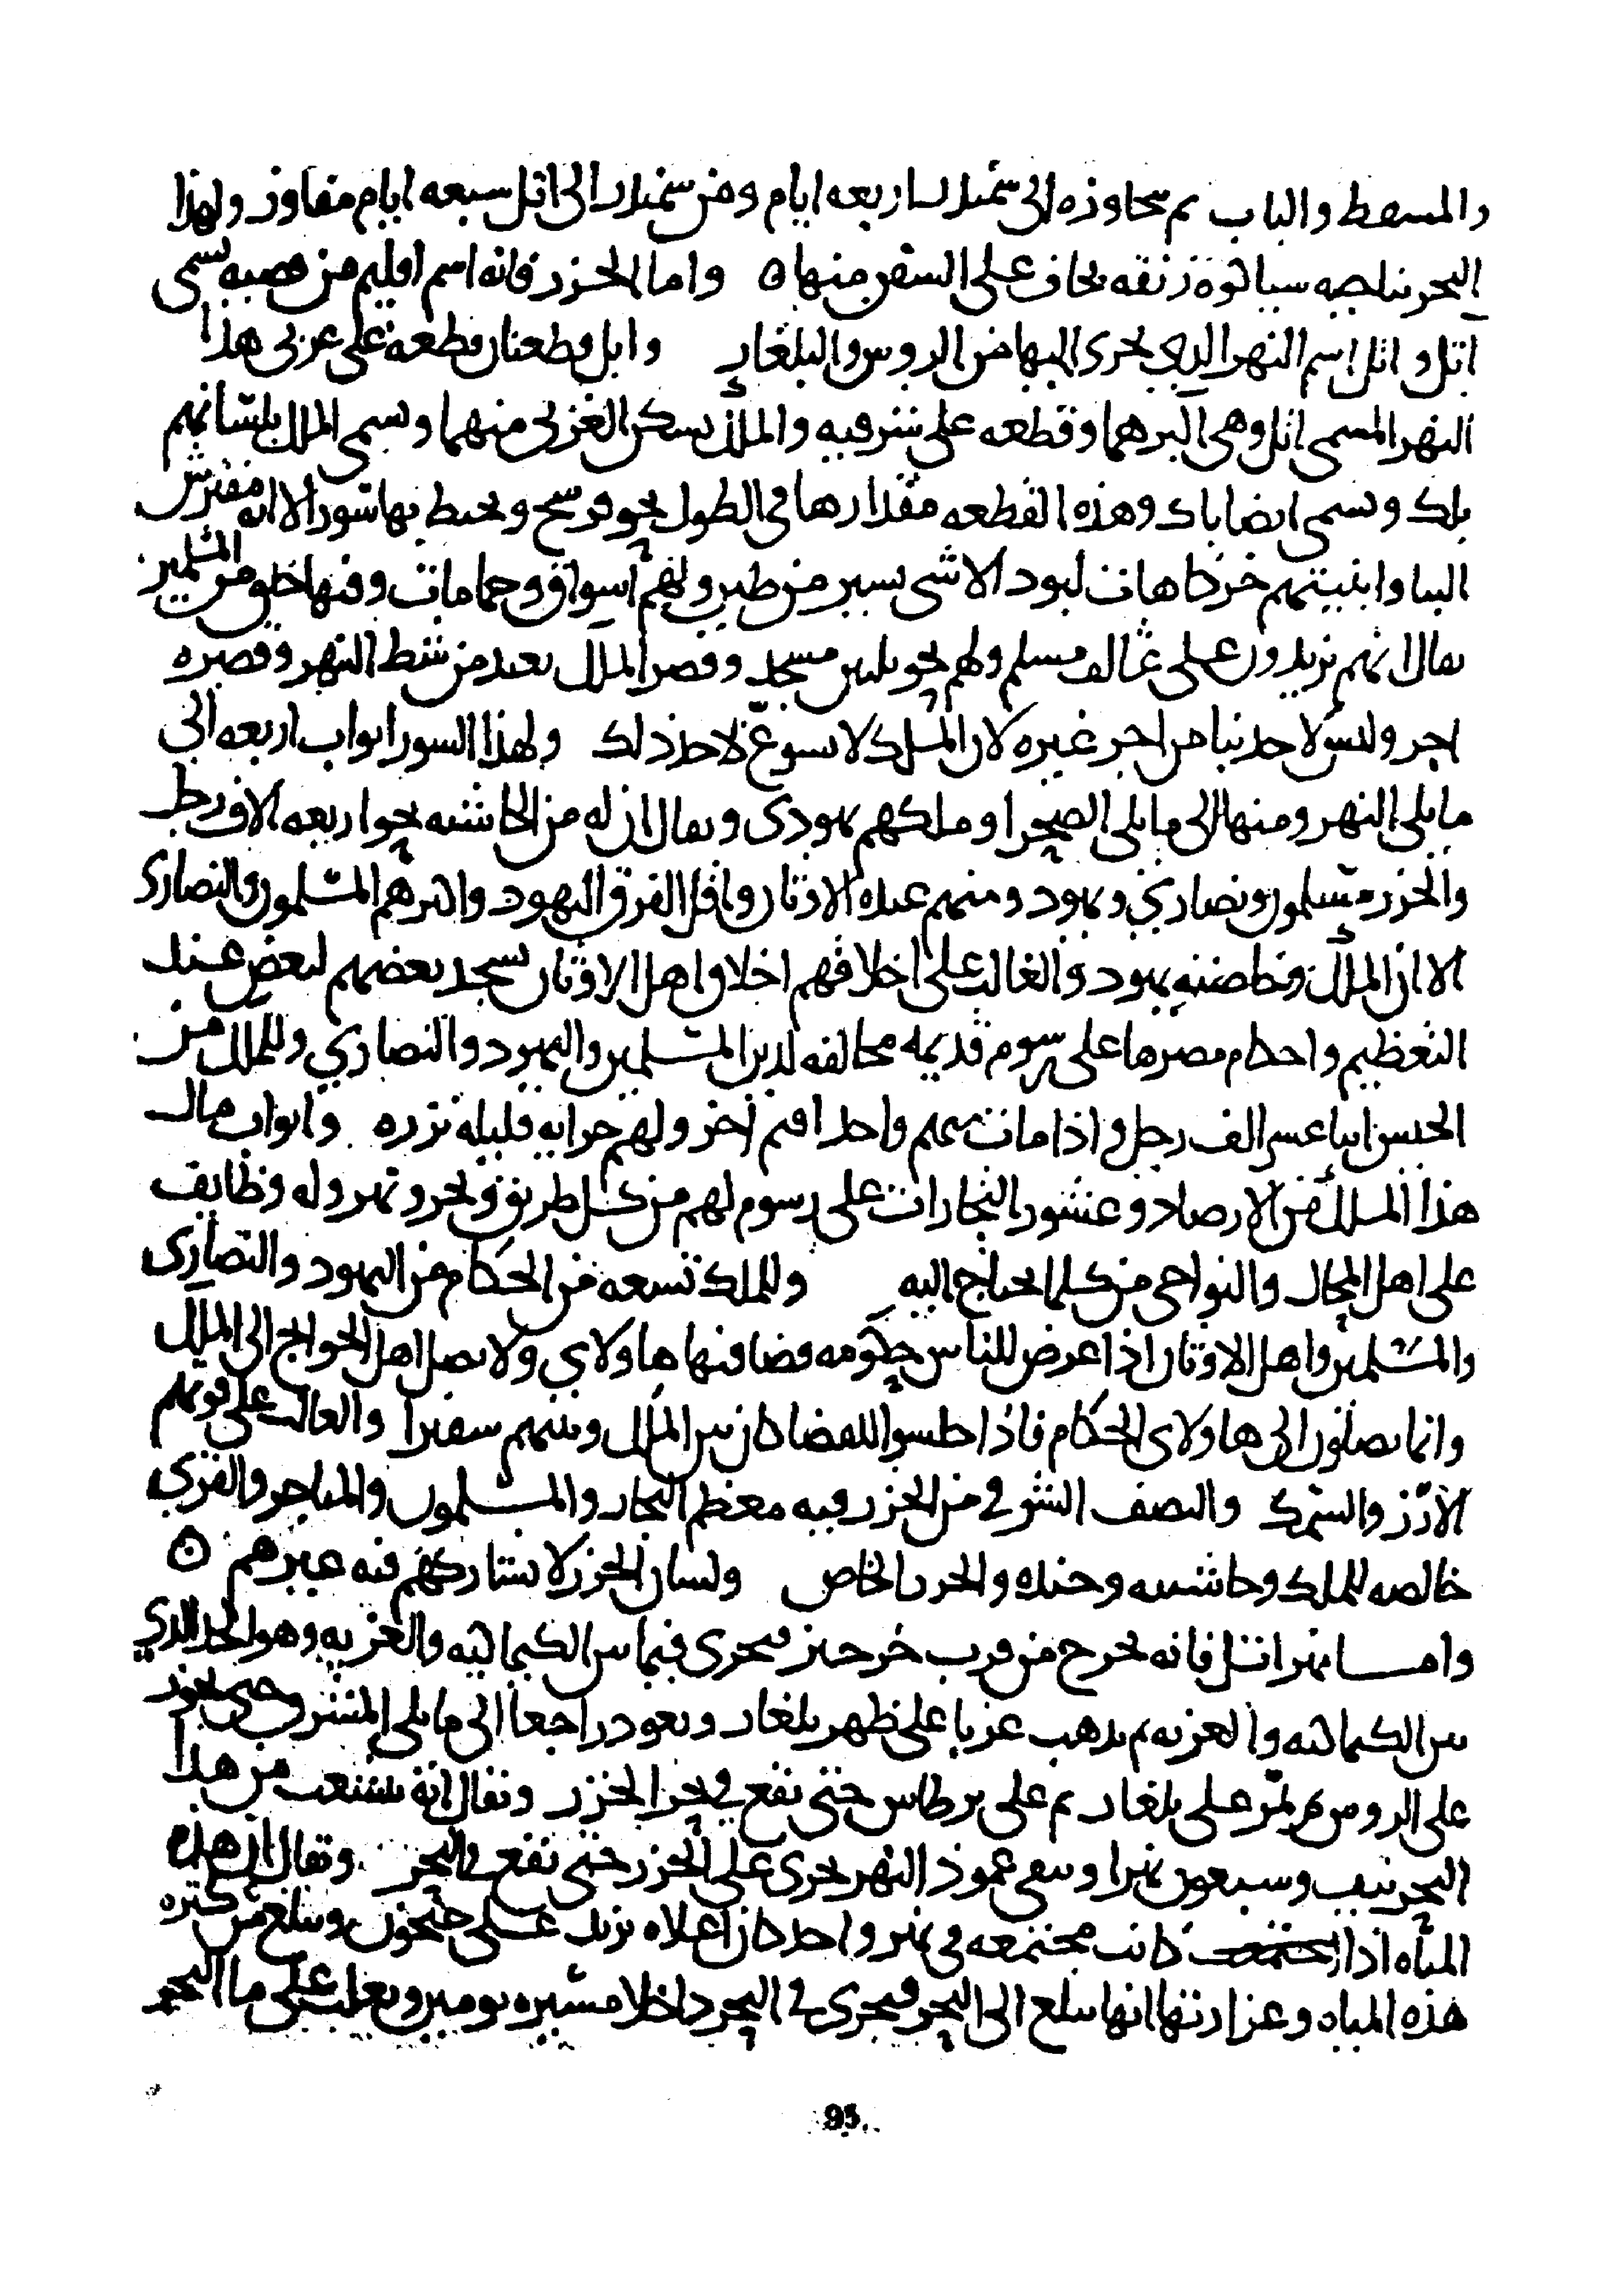 والمسقط والباب ثم تجاوزه الى سمندر اربعه ايام ومن سمندر الى اتل سبعه ايام مفاوز ولهذا
البحر بناحيه سياكوه زنقه يخاف على السفن منها ه واما الخزر فانه اسم اقليم من قصبه تسمى
اتل واتل اسم النهر الذي يجرى اليها من الروس والبلغار واتل قطعتان قطعه على غربى هذا
النهر المسمى اتل وهى اكبرهما وقطعه على شرقيه والملك يسكن الغربى منهما ويسمى الملك بلسانهم
بلك ويسمى ايضا باك وهذه القطعه مقدارها فى الطول نحو فرسخ ويحيط بها سور الا انه مفترش
البنا وابنيتهم خركاهات لبود الا شى يسير من طين ولهم اسواق وحمامات وفيها خلق من المسلمين
يقال انهم يزيدون على عشره الف مسلم ولهم نحو ثلثين مسجد وقصر الملك بعيد من شط النهر وقصره
اجر وليس لاحد بنا من اجر غيره لان الملك لا يسوغ لاحد ذلك ولهذا السور ابواب اربعه الى
ما يلى النهر ومنها الى ما يلى الصحرا وملكهم يهودى ويقال ان له من الحاشيه نحو اربعه الاف رجل
والخزر مسلمون ونصارى ويهود ومنهم عبده الاوثان واقل الفرق اليهود واكثرهم المسلمون والنصارى
الا ان الملك وخاصته يهود والغالب على اخلاقهم اخلاق اهل الاوثان يسجد بعضهم لبعض عند
التعظيم واحكام مصرها على رسوم قديمه مخالفه لدين المسلمين واليهود والنصارى وللملك من
الجيش اثنا عشر الف رجل واذا مات منهم واحد اقيم اخر ولهم جرايه قليله نزره وابواب مال
هذا الملك من الارصاد وعشور التجارات على رسوم لهم من كل طريق وبحر ونهر وله وظايف
على اهل المحال والنواحى من كل ما يحتاج اليه وللملك تسعه من الحكام من اليهود والنصارى
والمسلمين واهل الاوثان اذا عرض للناس حكومه قضا فيها هاولاى ولا يصل اهل الحوايج الى الملك
وانما يصلون الى هاولاى الحكام فاذا جلسوا للقضا كان بين الملك وبينهم سفيرا والغالب على قوتهم
الارز والسمك والنصف الشرقى من الخزر فيه معظم التجار والمسلمون والمتاجر والغربى
خالصه للملك وحاشيته وجنده والخزر الخاص ولسان الخزر لا يشاركهم فيه غيرهم ه
واما نهر اتل فانه يخرج من قرب خرخيز فيجرى فيما بين الكيماكيه والغزيه وهو الحد الذي
بين الكيماكيه والغزيه ثم يذهب غربا على ظهر بلغار ويعود راجعا الى ما يلى المشرق حتى يجوز
على الروس ثم يمر على بلغار ثم على برطاس حتى يقع فى بحر الخزر ويقال انه يتشعب من هذا
البحر نيف وسبعون نهرا ويبقى عمود النهر يجرى على الخزر حتى يقع فى البحر ويقال ان هذه
المياه اذا اجتمعت كانت مجتمعه فى نهر واحد كان اعلاه يزيد على جيحون ويبلغ من كثره
هذه المياه وغزارتها انها تبلغ الى البحر فيجرى فى البحر داخلا مسيره يومين ويغلب على ما البحر
95